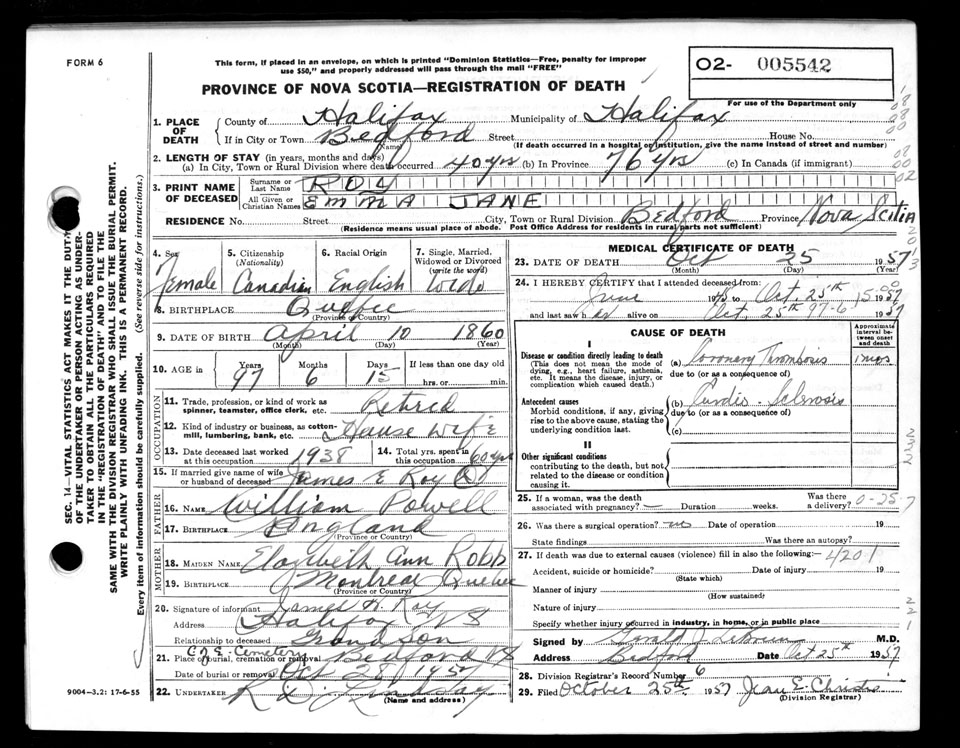 FORM 6
This form, if placed in an envelope, on which is printed "Dominion Statistics—Free, penalty for improper
use $50," and properly addressed will pass through the mail "FREE"
O2- 005542
For use of the Department only
PROVINCE OF NOVA SCOTIA—REGISTRATION OF DEATH
1. PLACE OF DEATH County of Halifax Municipality of Halifax
If in City or Town Bedford Street House No.
(Name) (If death occurred in a hospital or institution, give the name instead of street and number)
2. LENGTH OF STAY (in years, months and days)
(a) In City, Town or Rural Division where death occurred 40 yrs (b) In Province 76 yrs (c) In Canada (if immigrant)
3. PRINT NAME OF DECEASED Surname or Last Name ROY
All Given or Christian Names EMMA JANE
RESIDENCE No. Street City, Town or Rural Division Bedford Province Nova Scotia
(Residence means usual place of abode. Post Office Address for residents in rural parts not sufficient)
4. Sex Female
5. Citizenship (Nationality) Canadian
6. Racial Origin English
7. Single, Married, Widowed or Divorced (write the word) Wido
8. BIRTHPLACE Quebec
(Province or Country)
9. DATE OF BIRTH April 10 1860
(Month) (Day) (Year)
10. AGE in Years 97 Months 6 Days 15 If less than one day old hrs. or min.
OCCUPATION
11. Trade, profession, or kind of work as spinner, teamster, office clerk, etc. Retired
12. Kind of industry or business, as cotton-mill, lumbering, bank, etc. House wife
13. Date deceased last worked at this occupation 1938
14. Total yrs. spent in this occupation 60 yrs
15. If married give name of wife or husband of deceased James E Roy
FATHER
16. NAME William Powell
17. BIRTHPLACE England
(Province or Country)
MOTHER
18. MAIDEN NAME Elazibeth Ann Robb
19. BIRTHPLACE Montreal Quebec
(Province or Country)
20. Signature of informant James R. Roy
Address Halifax NS
Relationship to deceased Grand Son
21. Place of burial, cremation or removal C of E. Cemetery Bedford NS
Date of burial or removal Oct 28, 1957
22. UNDERTAKER
(Name and Address)
MEDICAL CERTIFICATE OF DEATH
23. DATE OF DEATH Oct 25 1957
(Month) (Day) (Year)
24. I HEREBY CERTIFY that I attended deceased from:
June to Oct. 25th 1957
and last saw her alive on Oct. 25th 1957
97-6-15
CAUSE OF DEATH
Approximate interval between onset and death
I
Disease or condition directly leading to death (a) Coronary Thrombosis
(This does not mean the mode of dying, e.g., heart failure, asthenia, etc. It means the disease, injury, or complication which caused death.)
due to (or as a consequence of)
Antecedent causes (b) Cardio-Sclerosis
Morbid conditions, if any, giving rise to the above cause, stating the underlying condition last.
due to (or as a consequence of)
(c)
II
Other significant conditions
contributing to the death, but not related to the disease or condition causing it.
25. If a woman, was the death associated with pregnancy? — Duration weeks. Was there a delivery?
10-25-7
26. Was there a surgical operation? no Date of operation 19
State findings Was there an autopsy?
27. If death was due to external causes (violence) fill in also the following:— 4201
Accident, suicide or homicide? Date of injury 19
(State which)
Manner of injury
(How sustained)
Nature of injury
Specify whether injury occurred in industry, in home, or in public place
Signed by M.D.
Address Bedford Date Oct 25th 1957
28. Division Registrar's Record Number 6
29. Filed October 25th 1957 Jean E. Christie
(Division Registrar)
SEC. 14—VITAL STATISTICS ACT MAKES IT THE DUTY
OF THE UNDERTAKER OR PERSON ACTING AS UNDER-
TAKER TO OBTAIN ALL THE PARTICULARS REQUIRED
IN THE "REGISTRATION OF DEATH" AND TO FILE THE
SAME WITH THE DIVISION REGISTRAR WHO SHALL ISSUE THE BURIAL PERMIT.
WRITE PLAINLY WITH UNFADING INK. THIS IS A PERMANENT RECORD.
Every item of information should be carefully supplied. (See reverse side for instructions.)
9004-3.2: 17-6-55